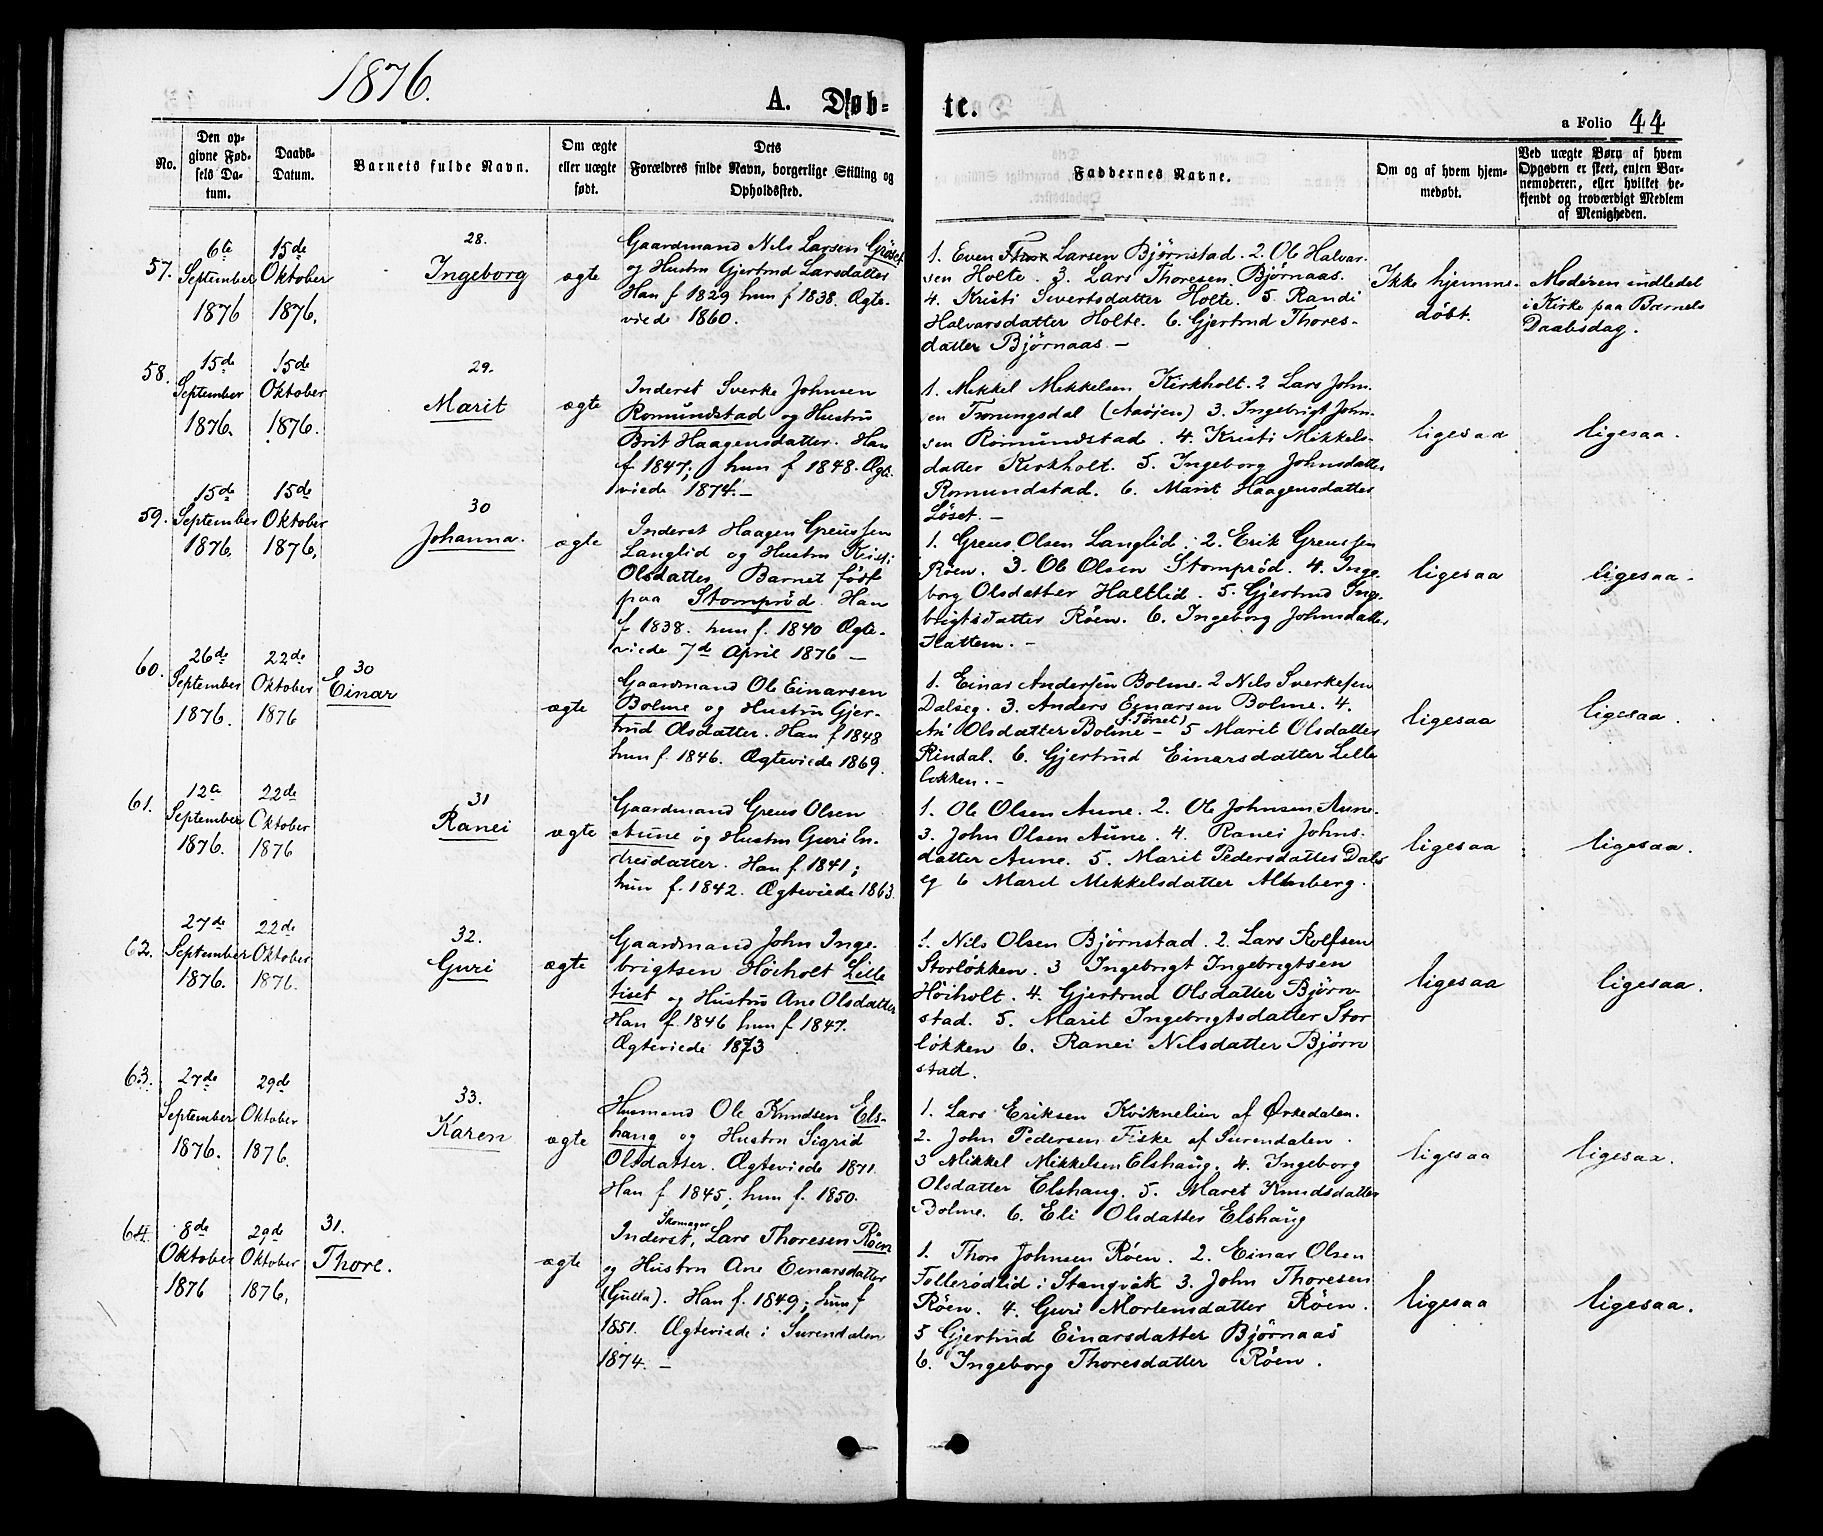 1876.
A. Døb-
te.
a Folio 44
No.
Den op-
givne Fød-
sels Da-
tum.
Daabs-
Datum.
Barnets fulde Navn.
Om ægte
eller uægte
født.
Dets
Forældres fulde Navn, borgerlige Stilling og
Opholdssted.
Faddernes Navne.
Om og af hvem hjem-
medøbt.
Ved uægte Børn af hvem
Opgaven er skeet, enten Bar-
nemoderen, eller hvilket be-
kjendt og troværdigt Medlem
af Menigheden.
57.
6te
September
1876
15de
Oktober
1876.
28.
Ingeborg
ægte
Gaardmand Nils Larsen Grøset
og Hustru Gjertrud Larsdatter
Han f 1829 hun f 1838. Ægte-
viede 1860.
1. Even Larsen Bjørnstad. 2. Ole Halvar-
sen Holte. 3. Lars Thoresen Bjørnaas.
4. Kristi Sivertsdatter Holte. 5. Randi
Halvarsdatter Holte. 6. Gjertrud Thores-
datter Bjørnaas. -
Ikke hjemme-
døbt.
Moderen indledet
i Kirke paa Barnets
Daabsdag.
58.
15de
September
1876.
15de
Oktober
1876.
29.
Marit
ægte
Inderst Sverke Johnsen
Romundstad og Hustru
Brit Haagensdatter. Han
f 1847; hun f 1848. Ægte-
viede 1874. -
1. Mikkel Mikkelsen Kirkholt. 2 Lars John-
sen Tronungsdal (Aasøjen) 3. Ingebrigt John-
sen Romundstad. 4. Kristi Mikkels-
datter Kirkholt. 5. Ingeborg Johnsdatter
Romundstad. 6. Marit Haagensdatter
Løset. -
ligesaa
ligesaa.
59.
15de
September
1876.
15de
Oktober
1876,
30
Johanna.
ægte
Inderst Haagen Greussen
Langlid og Hustru Kristi
Olsdatter. Barnet født
paa Stomprød. Han
f 1838. hun f. 1840 Ægte-
viede 7de April 1876 -
1. Greus Olsen Langlid. 2. Erik Greussen
Røen. 3. Ole Olsen Stomprød. 4. Inge-
borg Olsdatter Haltlid. 5. Gjertrud Inge-
brigtsdatter Røen. 6. Ingeborg Johnsdatter
Hattem. -
ligesaa
ligesaa.
60.
26de
September
1876.
22de
Oktober
1876
30
Einar
ægte
Gaardmand Ole Einarsen
Bolme og Hustru Gjer-
trud Olsdatter. Han f 1848
hun f. 1846. Ægteviede 1869.
1. Einar Andersen Bolme. 2 Nils Sverkesen
Dalseg. 3. Anders Einarsen Bolme. 4.
An Olsdatter Bolme (Tørset) - 5 Marit Olsdatter
Rindal. 6. Gjertrud Einarsdatter Lille
løkken. -
ligesaa
ligesaa.
61.
12te
September
1876.
22de
Oktober
1876
31
Ranei
ægte
Gaardmand Greus Olsen
Aune og Hustru Guri En-
dresdatter. Han f. 1841;
hun f. 1842. Ægteviede 1863.
1. Ole Olsen Aune. 2. Ole Johnsen Aune.
3. John Olsen Aune. 4. Ranei Johns-
datter Aune. 5. Marit Pedersdatter Dals
eg 6 Marit Mikkelsdatter Almberg.
ligesaa
ligesaa.
62.
27de
September
1876.
22de
Oktober
1876.
32.
Guri
ægte
Gaardmand John Inge-
brigtsen Høiholt Lille
tiset og Hustru Ane Olsdatter
Han f. 1846 hun f 1847.
Ægteviede 1873
1. Nils Olsen Bjørnstad. 2. Lars Rolfsen
Storløkken. 3 Ingebrigt Ingebrigtsen
Høiholt. 4. Gjertrud Olsdatter Bjørn-
stad. 5. Marit Ingebrigtsdatter Stor
løkken 6. Ranei Nilsdatter Bjørn
stad.
ligesaa
ligesaa.
63.
27de
September
1876.
29de
Oktober
1876.
33.
Karen
ægte
Husmand Ole Knudsen Els-
haug og Hustru Sigrid
Olsdatter. Ægteviede 1871.
Han f 1845, hun f. 1850.
1. Lars Eriksen Kviknelien af Ørkedalen.
2. John Pedersen Fiske af Surendalen.
3 Mikkel Mikkelsen Elshaug. 4. Ingeborg
Olsdatter Elshaug. 5. Maret Knudsdatter
Bolme. 6. Eli Olsdatter Elshaug
ligesaa
ligesaa.
64.
8de
Oktober
1876
29de
Oktober
1876,
31.
Thore.
ægte
Skomager
Inderst, Lars Thoresen Røen
og Hustru Ane Einarsdatter
(Gulla). Han f. 1849; hun f
1851. Ægteviede i Surendalen
1874. -
1. Thore Johnsen Røen. 2. Einar Olsen
Tollerødlid i Stangvik 3. John Thoresen
Røen. 4. Guri Mortensdatter Røen.
5 Gjertrud Einarsdatter Bjørnaas
6. Ingeborg Thoresdatter Røen.
ligesaa
ligesaa.